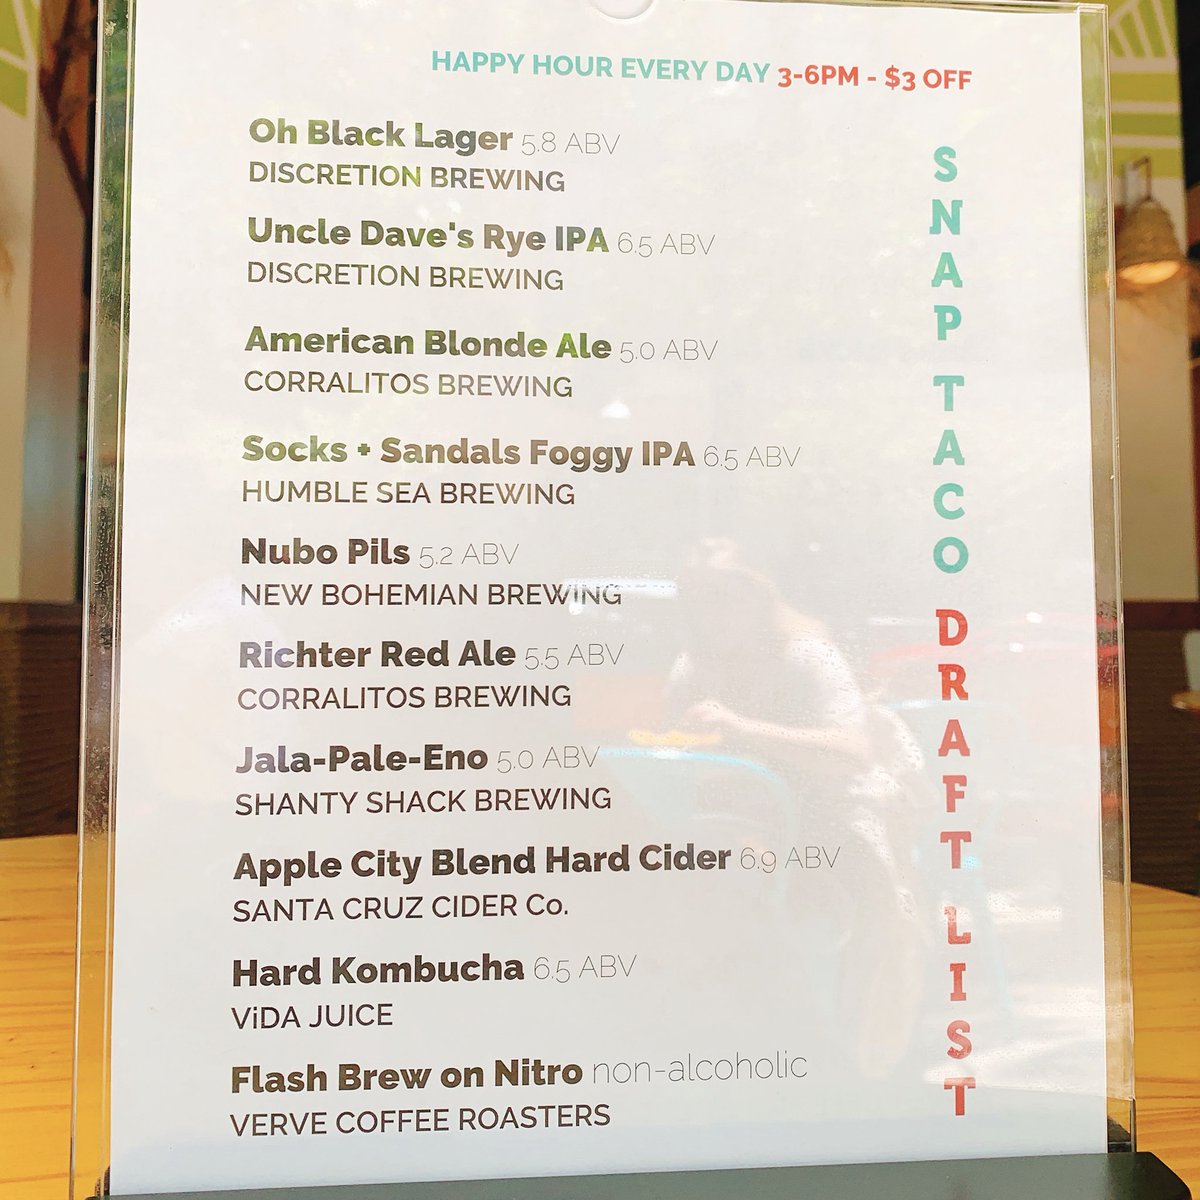 HAPPY HOUR EVERY DAY 3-6PM - $3 OFF
Oh Black Lager 5.8 ABV
DISCRETION BREWING
Uncle Dave's Rye IPA 6.5 ABV
DISCRETION BREWING
American Blonde Ale 5.0 ABV
CORRALITOS BREWING
Socks + Sandals Foggy IPA 6.5 ABV
HUMBLE SEA BREWING
Nubo Pils 5.2 ABV
NEW BOHEMIAN BREWING
Richter Red Ale 5.5 ABV
CORRALITOS BREWING
Jala-Pale-Eno 5.0 ABV
SHANTY SHACK BREWING
Apple City Blend Hard Cider 6.9 ABV
SANTA CRUZ CIDER Co.
Hard Kombucha 6.5 ABV
ViDA JUICE
Flash Brew on Nitro non-alcoholic
VERVE COFFEE ROASTERS
SNAP TACO DRAFT LIST